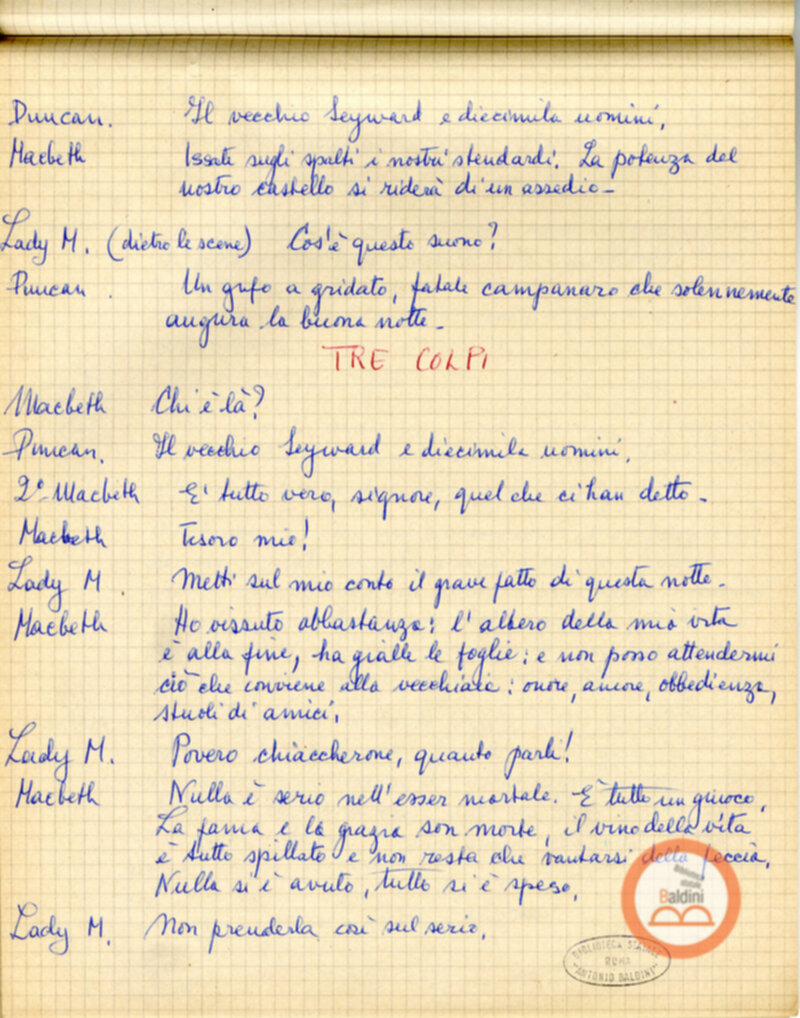 Duncan. Il vecchio Seyward e diecimila uomini,
Macbeth Issate sugli spalti i nostri stendardi. La potenza del
nostro castello si riderà di un assedio -
Lady M. (dietro le scene) Cos'è questo suono?
Duncan . Un gufo a gridato, fatale campanaro che solennemente
augura la buona notte -
TRE COLPI
Macbeth Chi è là?
Duncan. Il vecchio Seyward e diecimila uomini,
2° Macbeth E' tutto vero, signore, quel che ci han detto -
Macbeth Tesoro mio!
Lady M . Metti sul mio conto il grave fatto di questa notte -
Macbeth Ho vissuto abbastanza: l'albero della mia vita
è alla fine, ha gialle le foglie: e non posso attendermi
ciò che conviene alla vecchiaia: onore, amore, obbedienza,
stuoli di amici.
Lady M. Povero chiaccherone, quanto parli!
Macbeth Nulla è serio nell'esser mortale. È tutto un giuoco,
La fama e la grazia son morte, il vino della vita
è tutto spillato e non resta che vantarsi della feccia,
Nulla si è avuto, tutto si è speso,
Lady M. Non prenderla così sul serio.
Biblioteca
statale
Baldini
BIBLIOTECA STATALE
ROMA
"ANTONIO BALDINI"